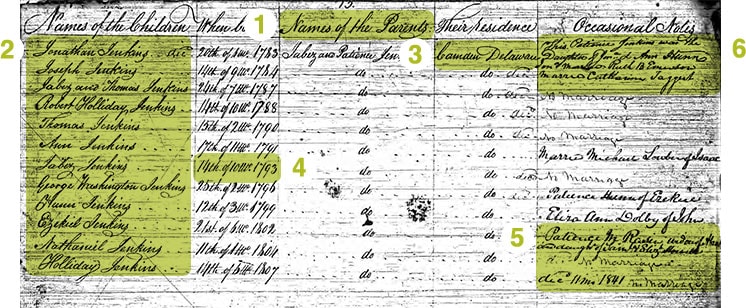 Names of the Children When b 1 Names of the Parents Their Residence Occasional Notes
2 Jonathan Jenkins dec 20th of 1mo. 1783 Jabez and Patience Jen 3 Camden Delaware This Patience Jenkins was the 6
Daughter of Jonad. Ann Hunn
Joseph Jenkins 14th of 9mo. 1784 do do Married Catharine Taggert
Jabez and Thomas Jenkins 24th of 7mo. 1787 do do dec No Marriage
Robert Holliday Jenkins 14th of 10mo. 1788 do do dec No Marriage
Thomas Jenkins 15th of 2mo. 1790 do do dec No Marriage
Ann Jenkins 17th of 11mo. 1791 do do Married Michael Lowber of Isaac
Jabez Jenkins 14th of 10mo. 1793 4 do do dec No Marriage
George Washington Jenkins 25th of 2mo. 1796 do do Patience Hunn of Ezekiel
Hunn Jenkins 12th of 3mo. 1799 do do Eliza Ann Dolby of John
Ezekiel Jenkins 21st of 5mo. 1802 do do 5 Patience M
Nathaniel Jenkins 11th of 1mo. 1804 do do No Marriage
Holliday Jenkins 14th of 5mo. 1807 do do dec 11mo 1841 no Marriage